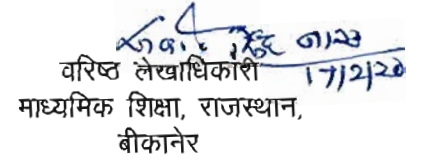 17/2/20
वरिष्ठ लेखाधिकारी
माध्यमिक शिक्षा, राजस्थान,
बीकानेर